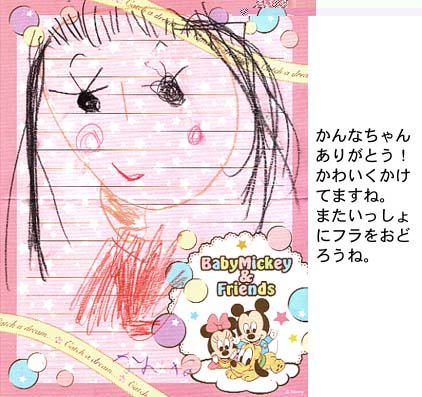 Catch a dream...
Catch a dream...
かんなちゃん
ありがとう！
かわいくかけ
てますね。
またいっしょ
にフラをおど
ろうね。
BabyMickey
&
Friends
Catch a dream...
Catch
かんな
© Disney